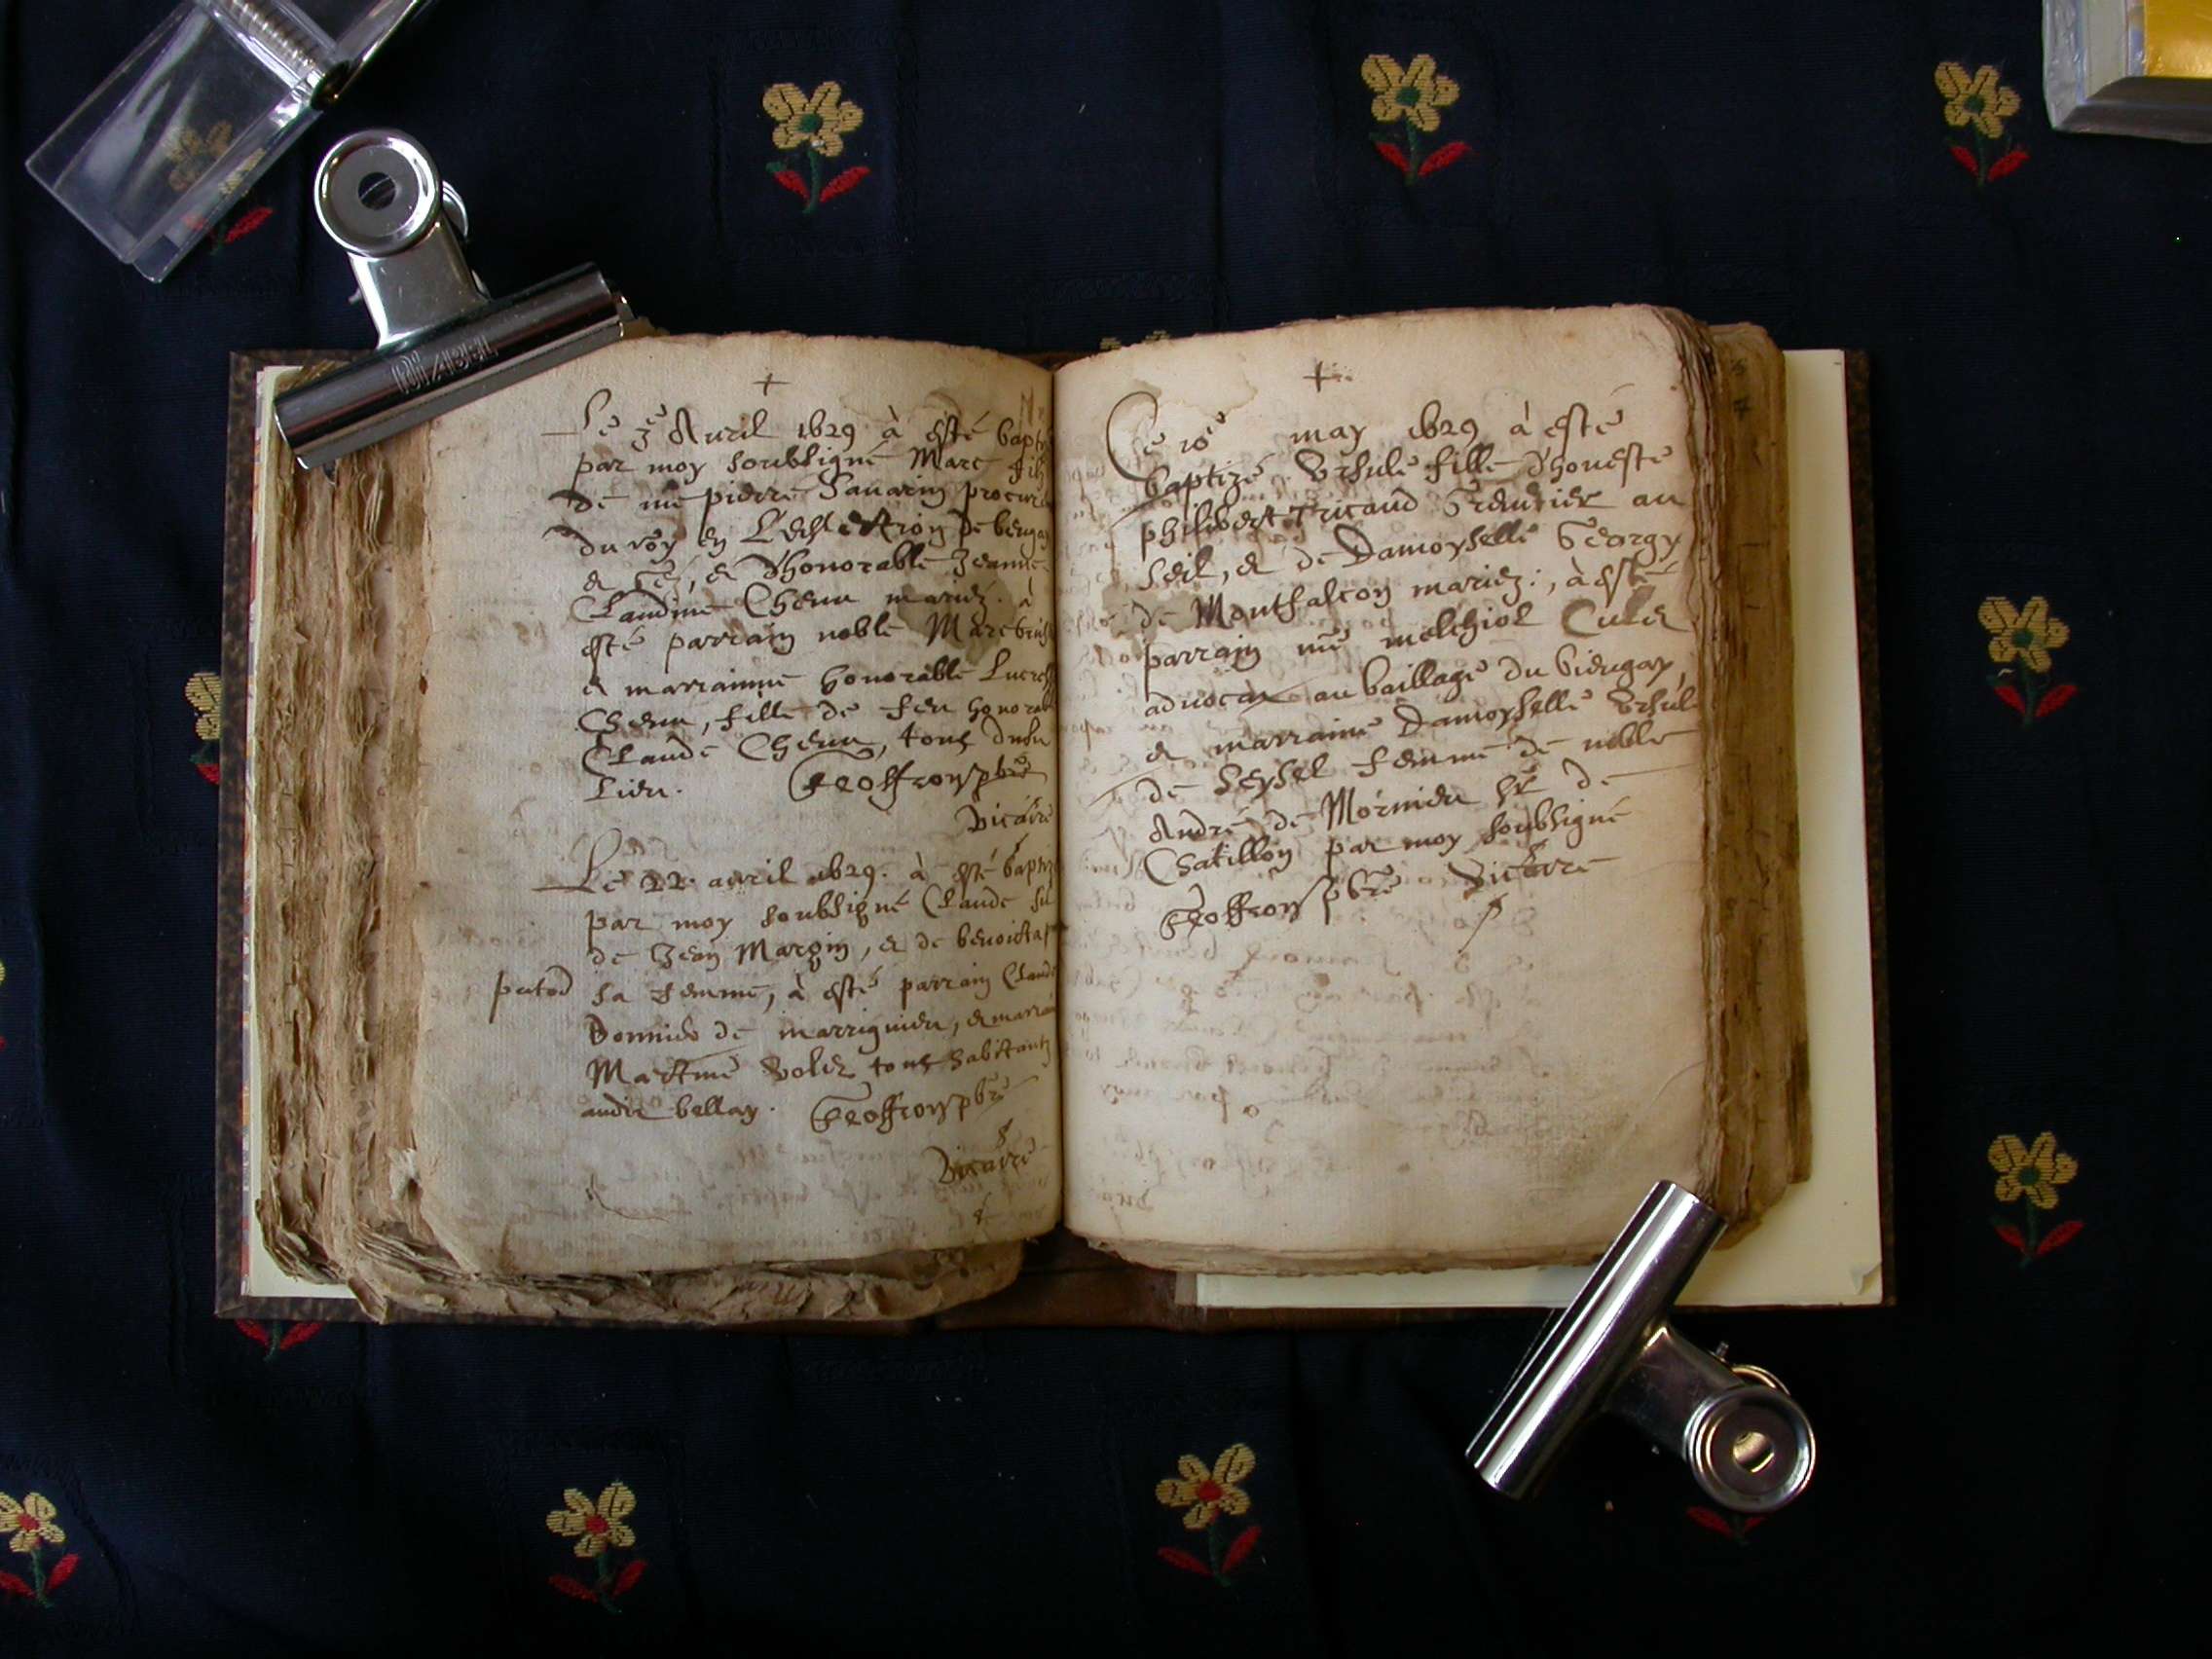 +
Le 3e Auril 1629 à esté bapt
par moy soubsigné Marc filz
de me pierre Sauarin procur
du roy en L'eslection de beugey
et , et d'honorable Jeanne
Claudine Chenu mariez. à
esté parrain noble Marc
et marrainne honorable Lucre
Chenu, fille de feu honorab
Claude Chenu, tous dudu
Lieu. Geoffroy pbre
Vicaire
Le 22. auril 1629. à esté baptiz
par moy soubsigné Claude fil
de Jean Margin, et de benoicta
sa femme, à esté parrain Claude
de marrignieu, et marrai
Martine tous habitantz
audit bellay. Geoffroy pbre
Vicaire
+
Le 10e may 1629 à esté
baptizé Vrsule fille d'honeste
philibert Tricaud Grenetier au
Seel, et de Damoyselle Georgy
de Montfalcon mariez:, à esté
parrain me melchiol Culet
aduocat au baillage du bieugay,
et marraine Damoyselle Vrsul
de Seysel femme de noble
André de Mornieu sr de
Chatillon par moy soubsigné
Geoffroy pbre Vicaire